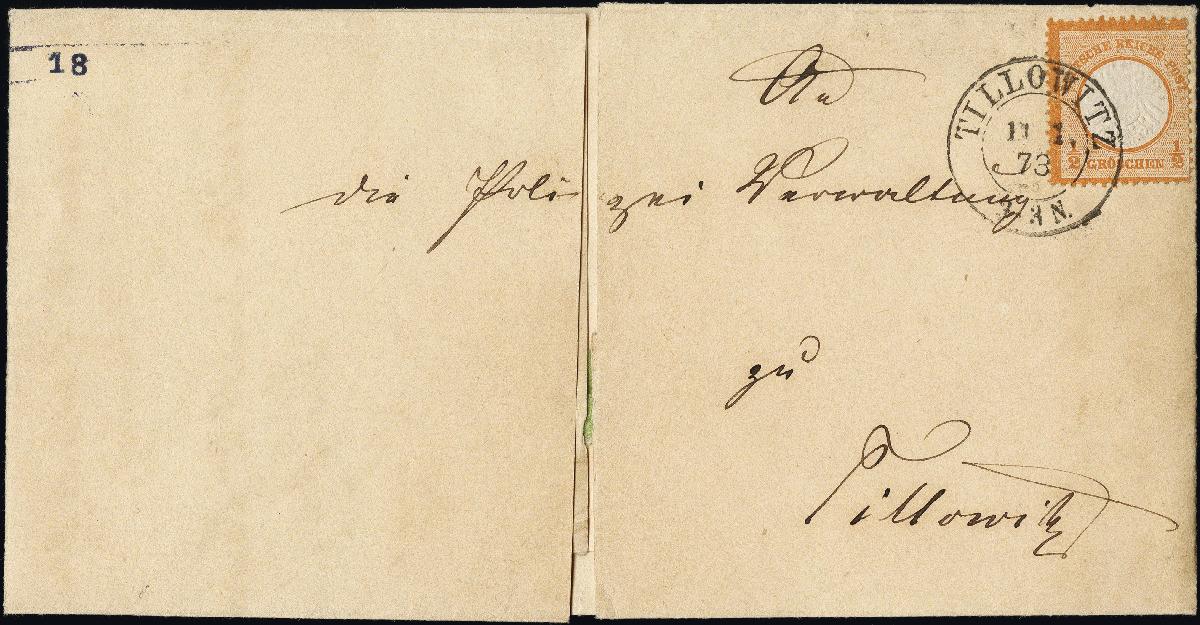 18
An
die Polizei Verwaltung
zu
Tillowitz
TILLOWITZ
11 1.
73
2-3 N.
DEUTSCHE REICHS-POST
1/2 GROSCHEN 1/2